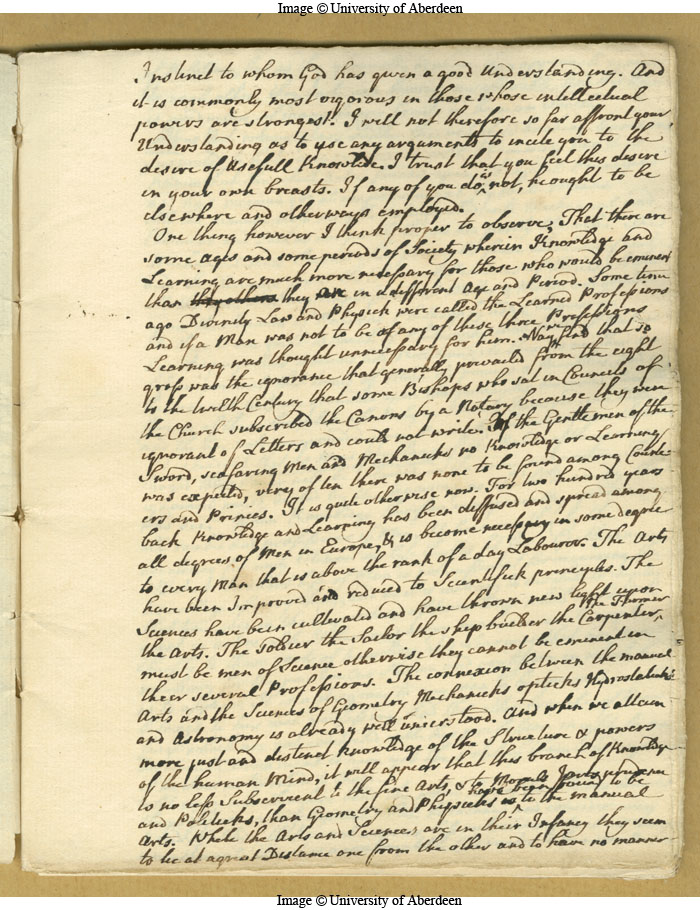 Image © University of Aberdeen
Instinct to whom God has given a good Understanding. And
it is commonly most vigorous in those whose intellectual
powers are strongest. I will not therefore so far affront your
Understanding as to use any arguments to incite you to the
desire of Usefull Knowledge. I trust that you feel this desire
in your own breasts. If any of you does not, he ought to be
elsewhere and otherways employed.
One thing however I think proper to observe, That there are
some ages and some periods of Society wherein Knowledge and
Learning are much more necessary for those who would be eminent
than they are in a different Age and Period. Some time
ago Divinity Law and Physick were called the Learned Professions
and if a Man was not to be of any of these three Professions
Learning was thought unnecessary for him. Nay find that so
gross was the ignorance that generally prevailed from the eight
to the twelth Century that some Bishops who sat in Councils of
the Church subscribed the Canons by a Notary because they were
ignorant of Letters and could not write. Of the Gentlemen of the
Sword, seafaring Men and Mechanicks no Knowledge or Learning
was expected, very often there was none to be found among Court
ers and Princes. It is quite otherwise now. For two hundred years
back Knowledge and Learning has been diffused and spread among
all degrees of Men in Europe, & is become necessary in some degree
to every Man that is above the rank of a day Labourer. The Arts
have been Improved and reduced to Scientifick principles. The
Sciences have been cultivated and have thrown new light upon
the Arts. The Soldier the Sailor the ship builder the Carpenter, the Farmer
must be men of Science otherwise they cannot be eminent in
their several Professions. The connexion between the manual
Arts and the Sciences of Geometry Mechanicks opticks Hydrostaticks
and Astronomy is already well understood. And when we attain
more just and distinct knowledge of the Structure & powers
of the human Mind, it will appear that this branch of Knowledge
is no less Subservient to the fine Arts, & to Morals Jurisprudence
and Politicks, than Geometry and Physicks have been found to be to the manual
Arts. While the Arts and Sciences are in their Infancy they seem
to be at a great Distance one from the other and to have no manner
Image © University of Aberdeen